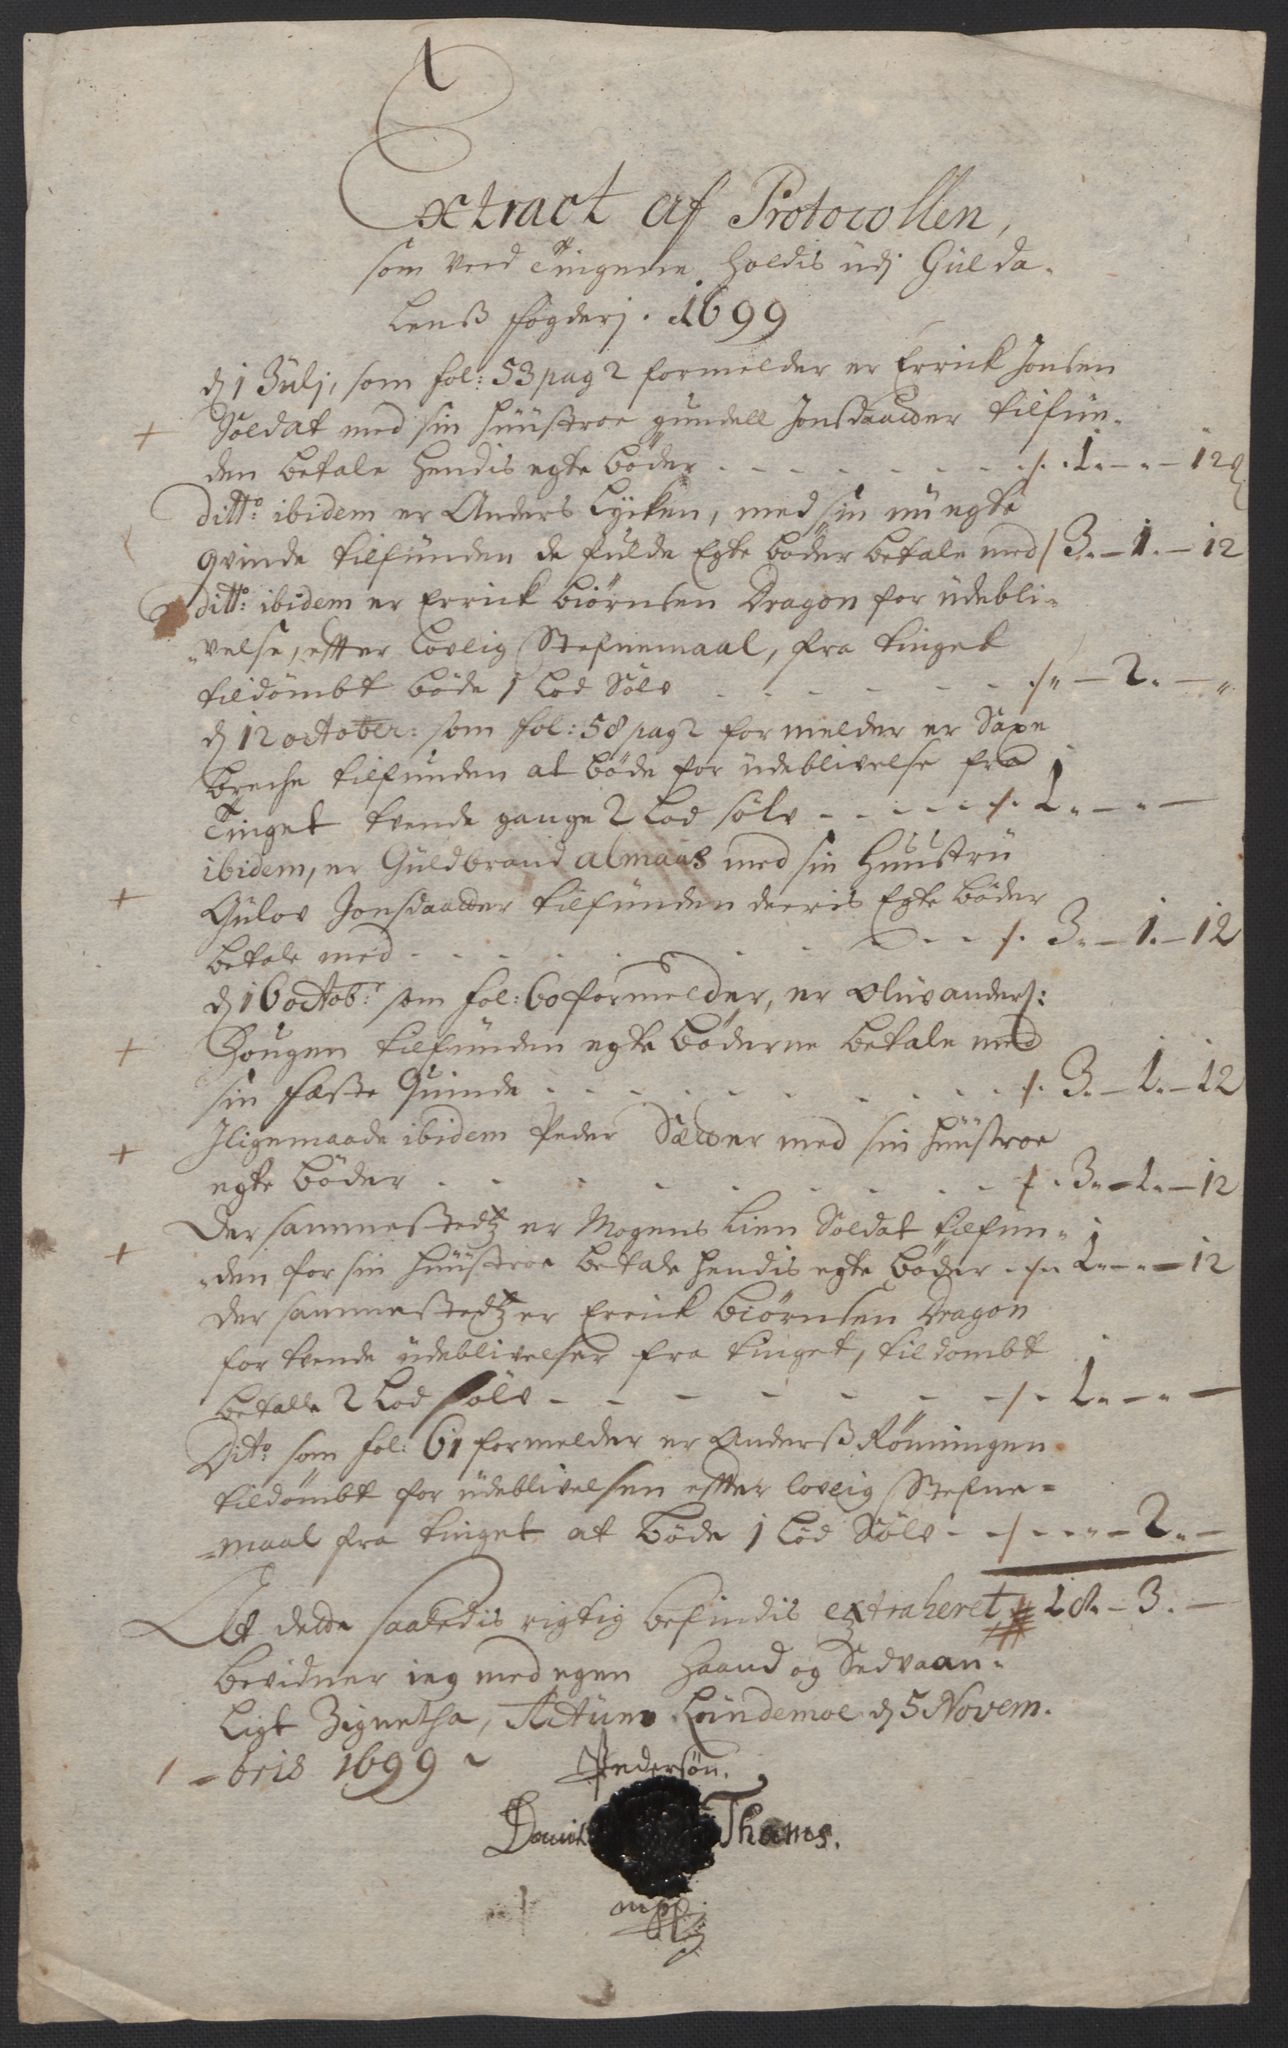 Extract af Protocollen,
som ved Tingene holdis udj Gulda-
lenß fogderj. 1699
d 1 Julj, som fol: 53 pag 2 formelder er Errick Jonsen
Soldat med sin huustroe gundell Jonsdaatter tilfun-
den betale hendis egte bøder - - - /. 1 - „ - 12 β
ditt: ibidem er Anders Lycken, med sin nu egte
qvinde tilfunden de fulde Egte bøder betale med / 3 - 1 - 12
ditt: ibidem er Errick biørnsen Dragon for udebli-
„velse, efter lovlig Stefnemaal, fra tinget
tildømbt bøde 1 Lod Sølv - - - /. „ - 2 - „
d 12 october: som fol: 58 pag 2 formelder er Saxe
breche tilfunden at bøde for udeblivelse fra
Tinget tvende gange 2 Lod sølv - - - /. 1 - „ -
ibidem, er Guldbrand almaas med sin Huustru
Gulov Jonsdaatter tilfunden deeris Egte bøder
betale med - - - /. 3 - 1 - 12
d 16 octobr: som fol: 60 formelder, er oluv anders:
Hougen tilfunden egte bøderne betale med
sin fæste Quinde - - - /. 3 - 1 - 12
Jligemaade ibidem Peder Sætter med sin huustroe
egte bøder - - - /. 3 - 1 - 12
der sammestedtz er Mogens Lien Soldat tilfun-
„den for sin huustroe betale hendis egte bøder - /. 1 - „ - 12
der sammestedtz er Errick biørnsen Dragon
for tvende udeblivelser fra tinget, tildombt
betalle 2 Lod sølv - - - /. 1 - „ -
Dito som fol: 61 formelder er Anderß Rønningen
tildømbt for udeblivelsen efter lovlig Stefne-
-maal fra tinget at bøde 1 Lod Sølv - /. - „ - 2 -
At dette saaledis rigtig befindis extraheret 18 - 3 -
bevidner ieg med egen Haand og Sedvaan-
ligt Zignetha, Actum Lundemoe d 5 Novem-
-bris 1699
Pedersøn.
David Thams.
mpp